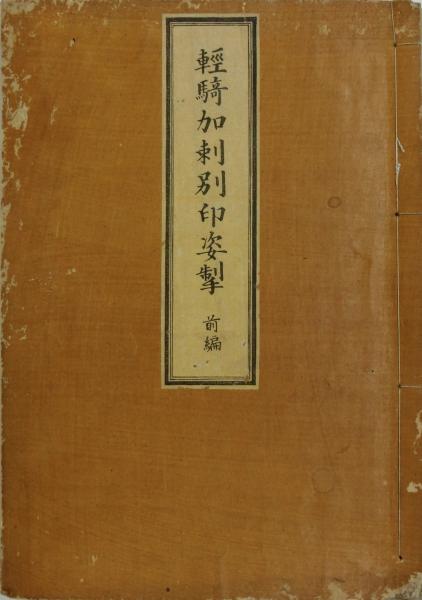 輕騎加刺別印姿掣
前編